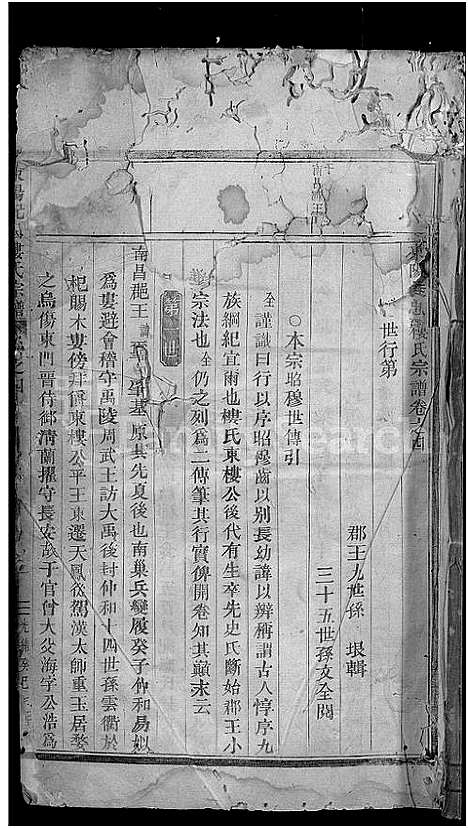 氏宗譜卷之四
世行第
郡王九世孫 垠輯
三十五世孫文全閱
○本宗昭穆世傳引
全謹識曰行以序昭穆齒以别長幼諱以辨稱謂古人惇序九
族綱紀宜爾也樓氏東樓公後代有生卒先史氏斷始郡王小
宗法也全仍之列爲二傳筆其行實俾開卷知其巔末云
第 世
南昌郡王 基原其先夏後也南巢兵變履癸子仲和易姒
爲婁避會稽守禹陵周武王訪大禹後封仲和十四世孫雲衢於
杞賜木婁傍拜爵東樓公平王東遷天鳳從 漢太師重玉居婺
之烏傷東門晋侍御淸蘭擢守長安 于官會大父海字公浩爲